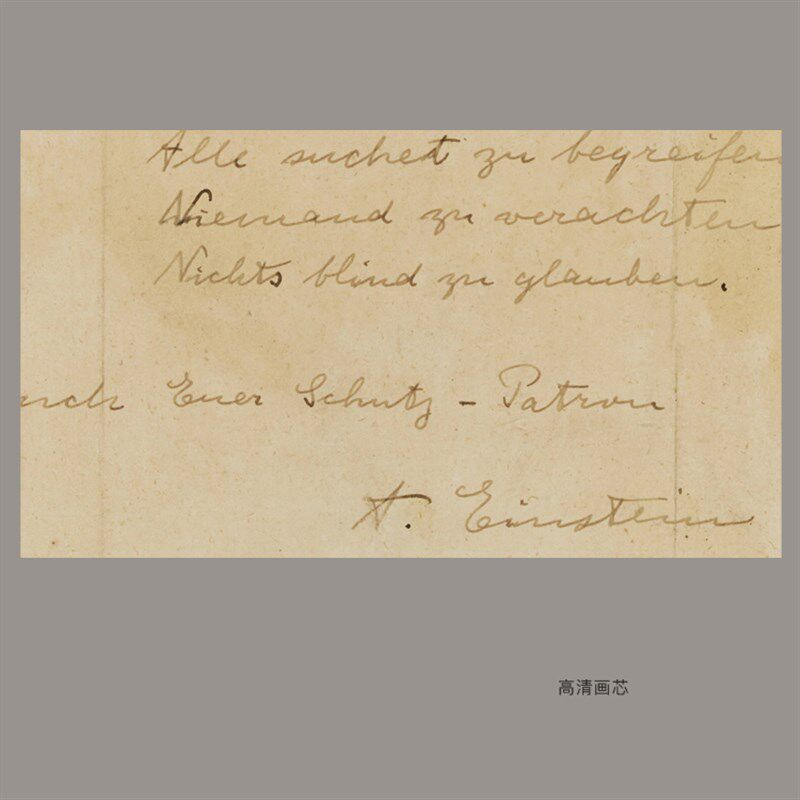 Alle suchet zu begreifen
Niemand zu verachten
Nichts blind zu glauben.
Euer Schutz - Patron
A. Einstein
高清画芯